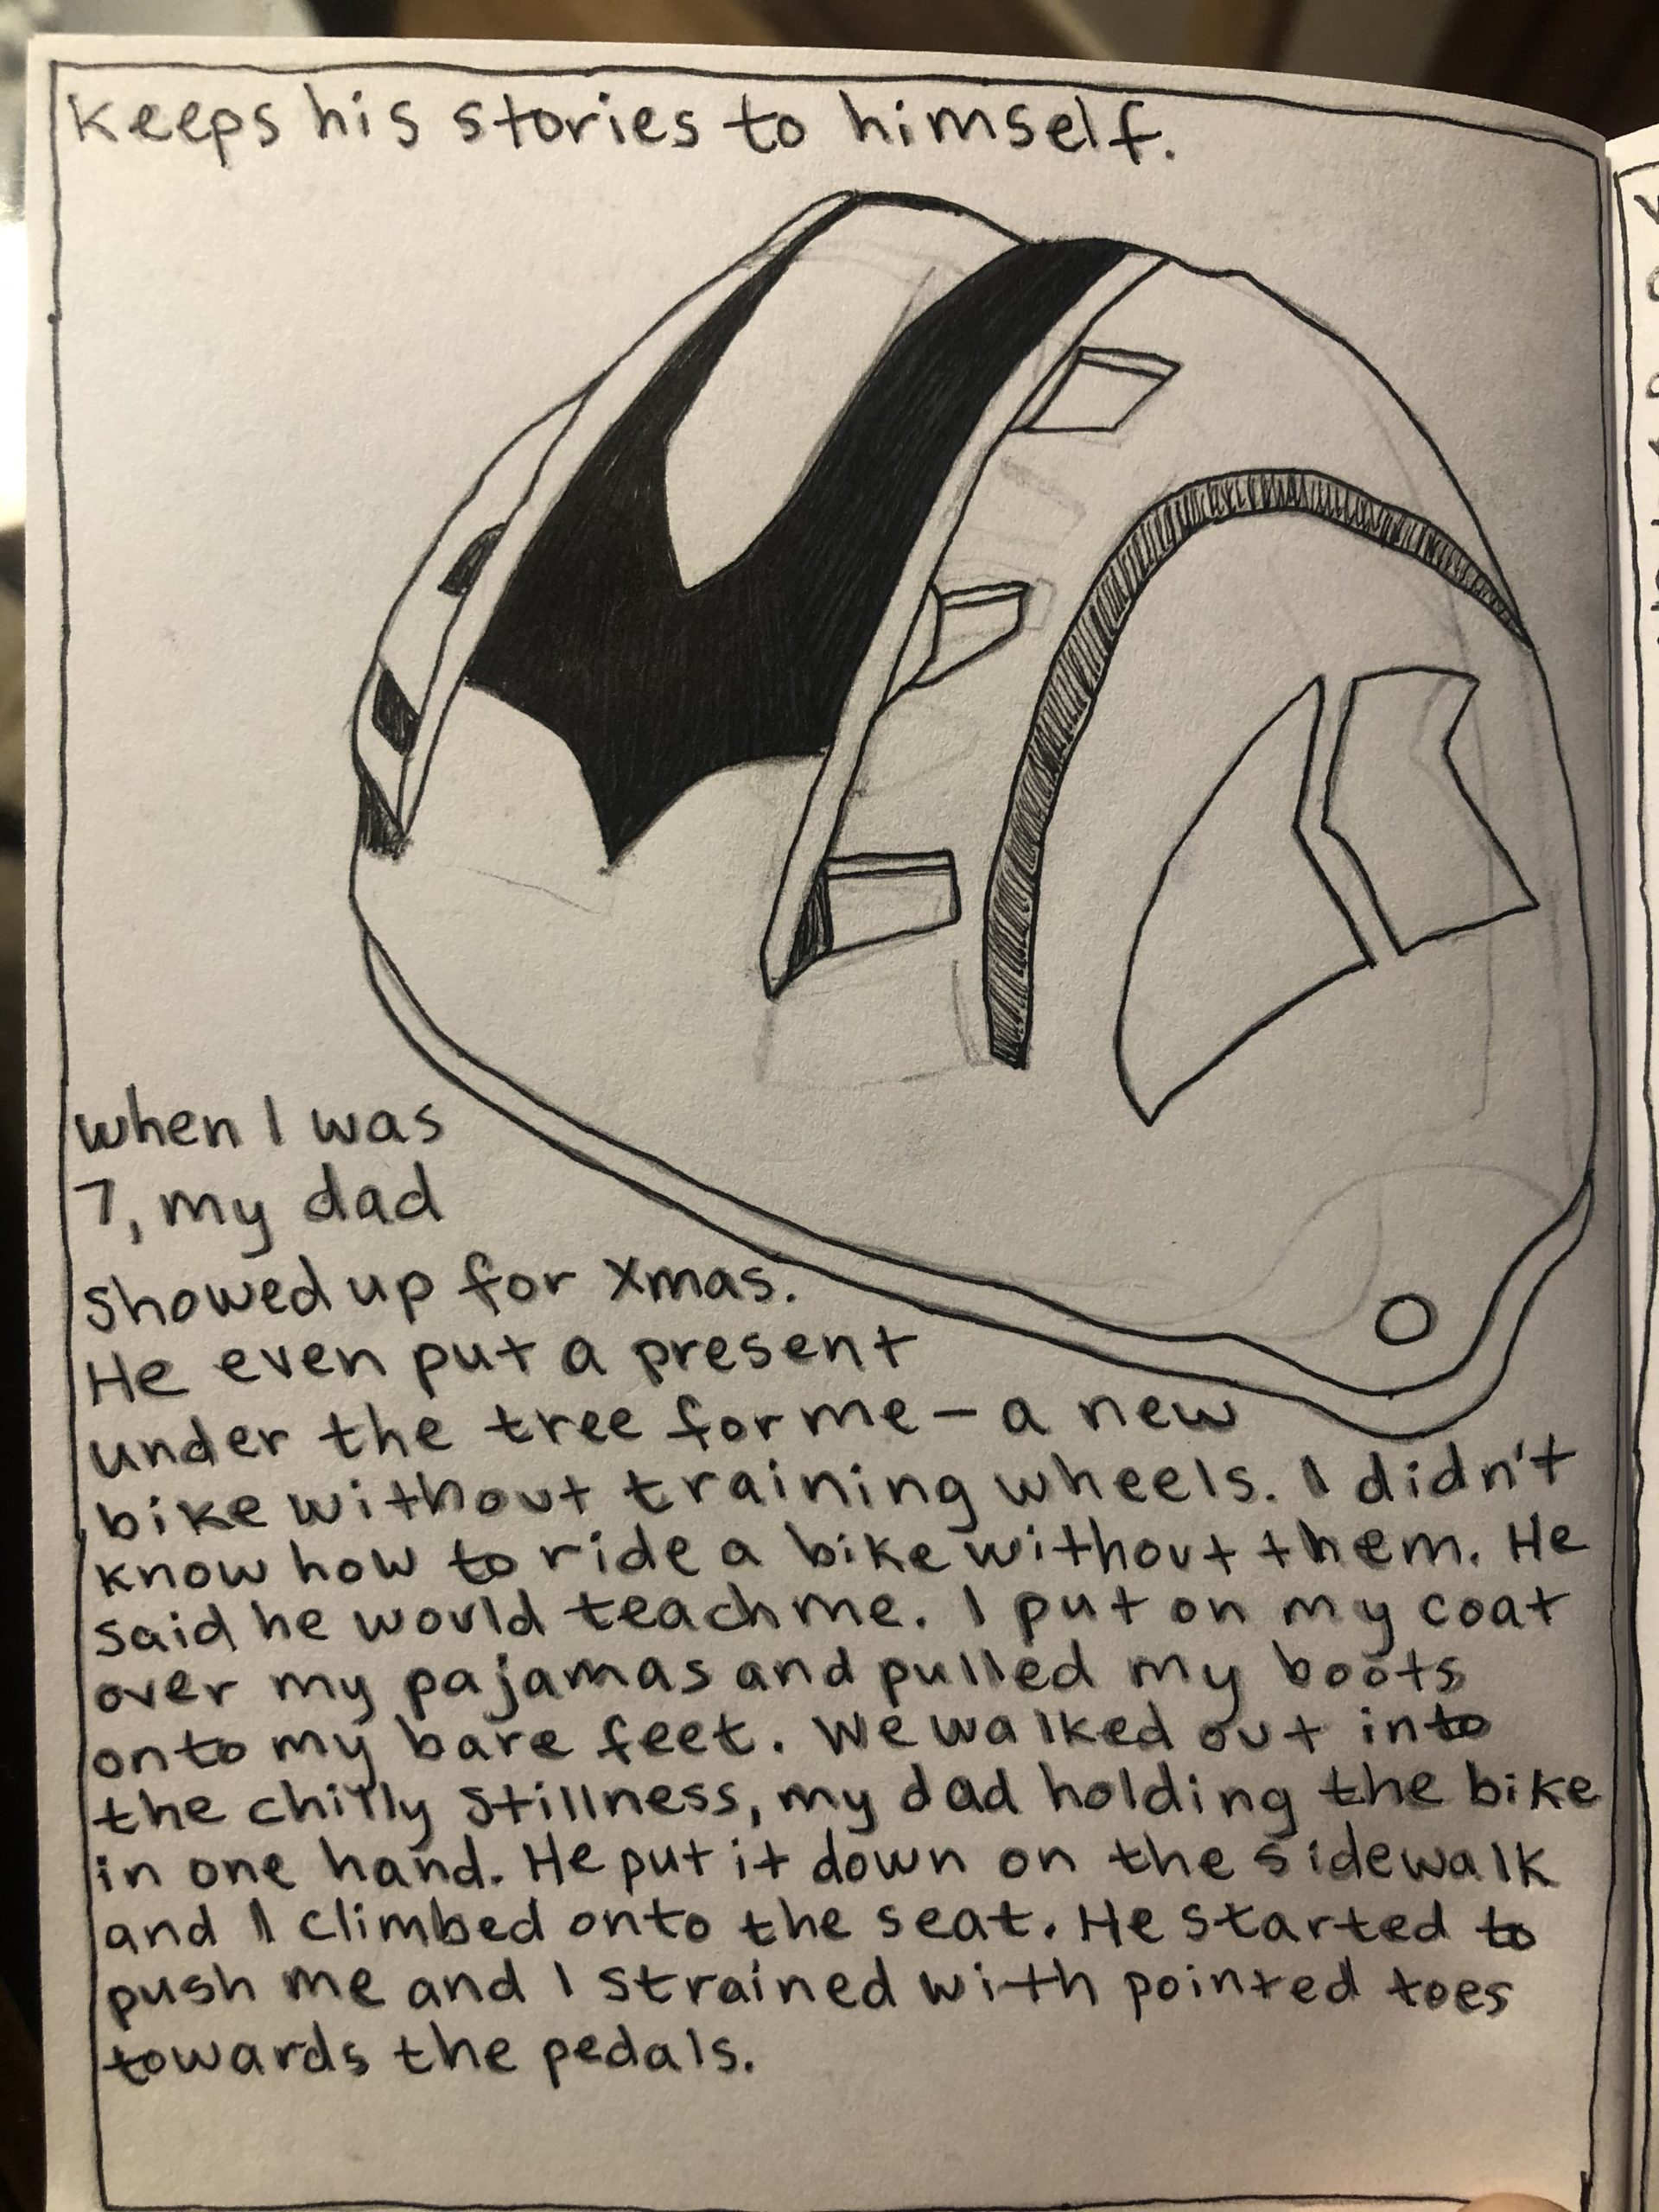 keeps his stories to himself.
when I was
7, my dad
showed up for xmas.
He even put a present
under the tree for me – a new
bike without training wheels. I didn't
know how to ride a bike without them. He
said he would teach me. I put on my coat
over my pajamas and pulled my boots
onto my bare feet. We walked out into
the chilly stillness, my dad holding the bike
in one hand. He put it down on the sidewalk
and I climbed onto the seat. He started to
push me and I strained with pointed toes
towards the pedals.